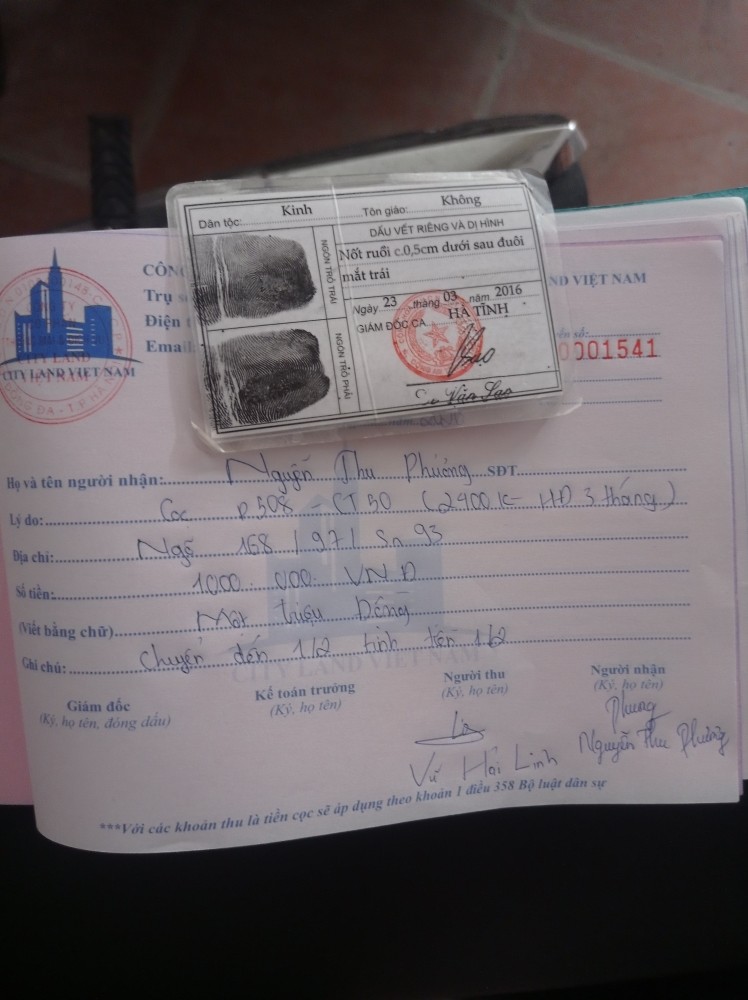 Dân tộc: Kinh Tôn giáo: Không
DẤU VẾT RIÊNG VÀ DỊ HÌNH
NGÓN TRỎ TRÁI
Nốt ruồi c.0,5cm dưới sau đuôi
mắt trái
Ngày 23 tháng 03 năm 2016
GIÁM ĐỐC CA HÀ TĨNH
NGÓN TRỎ PHẢI
CÔNG
Trụ s
Điện t
Email
ND VIỆT NAM
001541
CITY LAND VIET NAM
Họ và tên người nhận: Nguyễn Thu Phương SĐT
Lý do: Cọc P508 - CT50 (2400K - HĐ 3 tháng)
Địa chỉ: Ngõ 158 / 97 / Sn 93
Số tiền: 1000.000. VNĐ
(Viết bằng chữ) Một triệu Đồng
Ghi chú: Chuyển đến 1/2 tính tiền 1/2
CITY LAND VIET NAM
Giám đốc Kế toán trưởng Người thu Người nhận
(Ký, họ tên, đóng dấu) (Ký, họ tên) (Ký, họ tên) (Ký, họ tên)
Phương
Vũ Hải Linh Nguyễn Thu Phương
***Với các khoản thu là tiền cọc sẽ áp dụng theo khoản 1 điều 358 Bộ luật dân sự